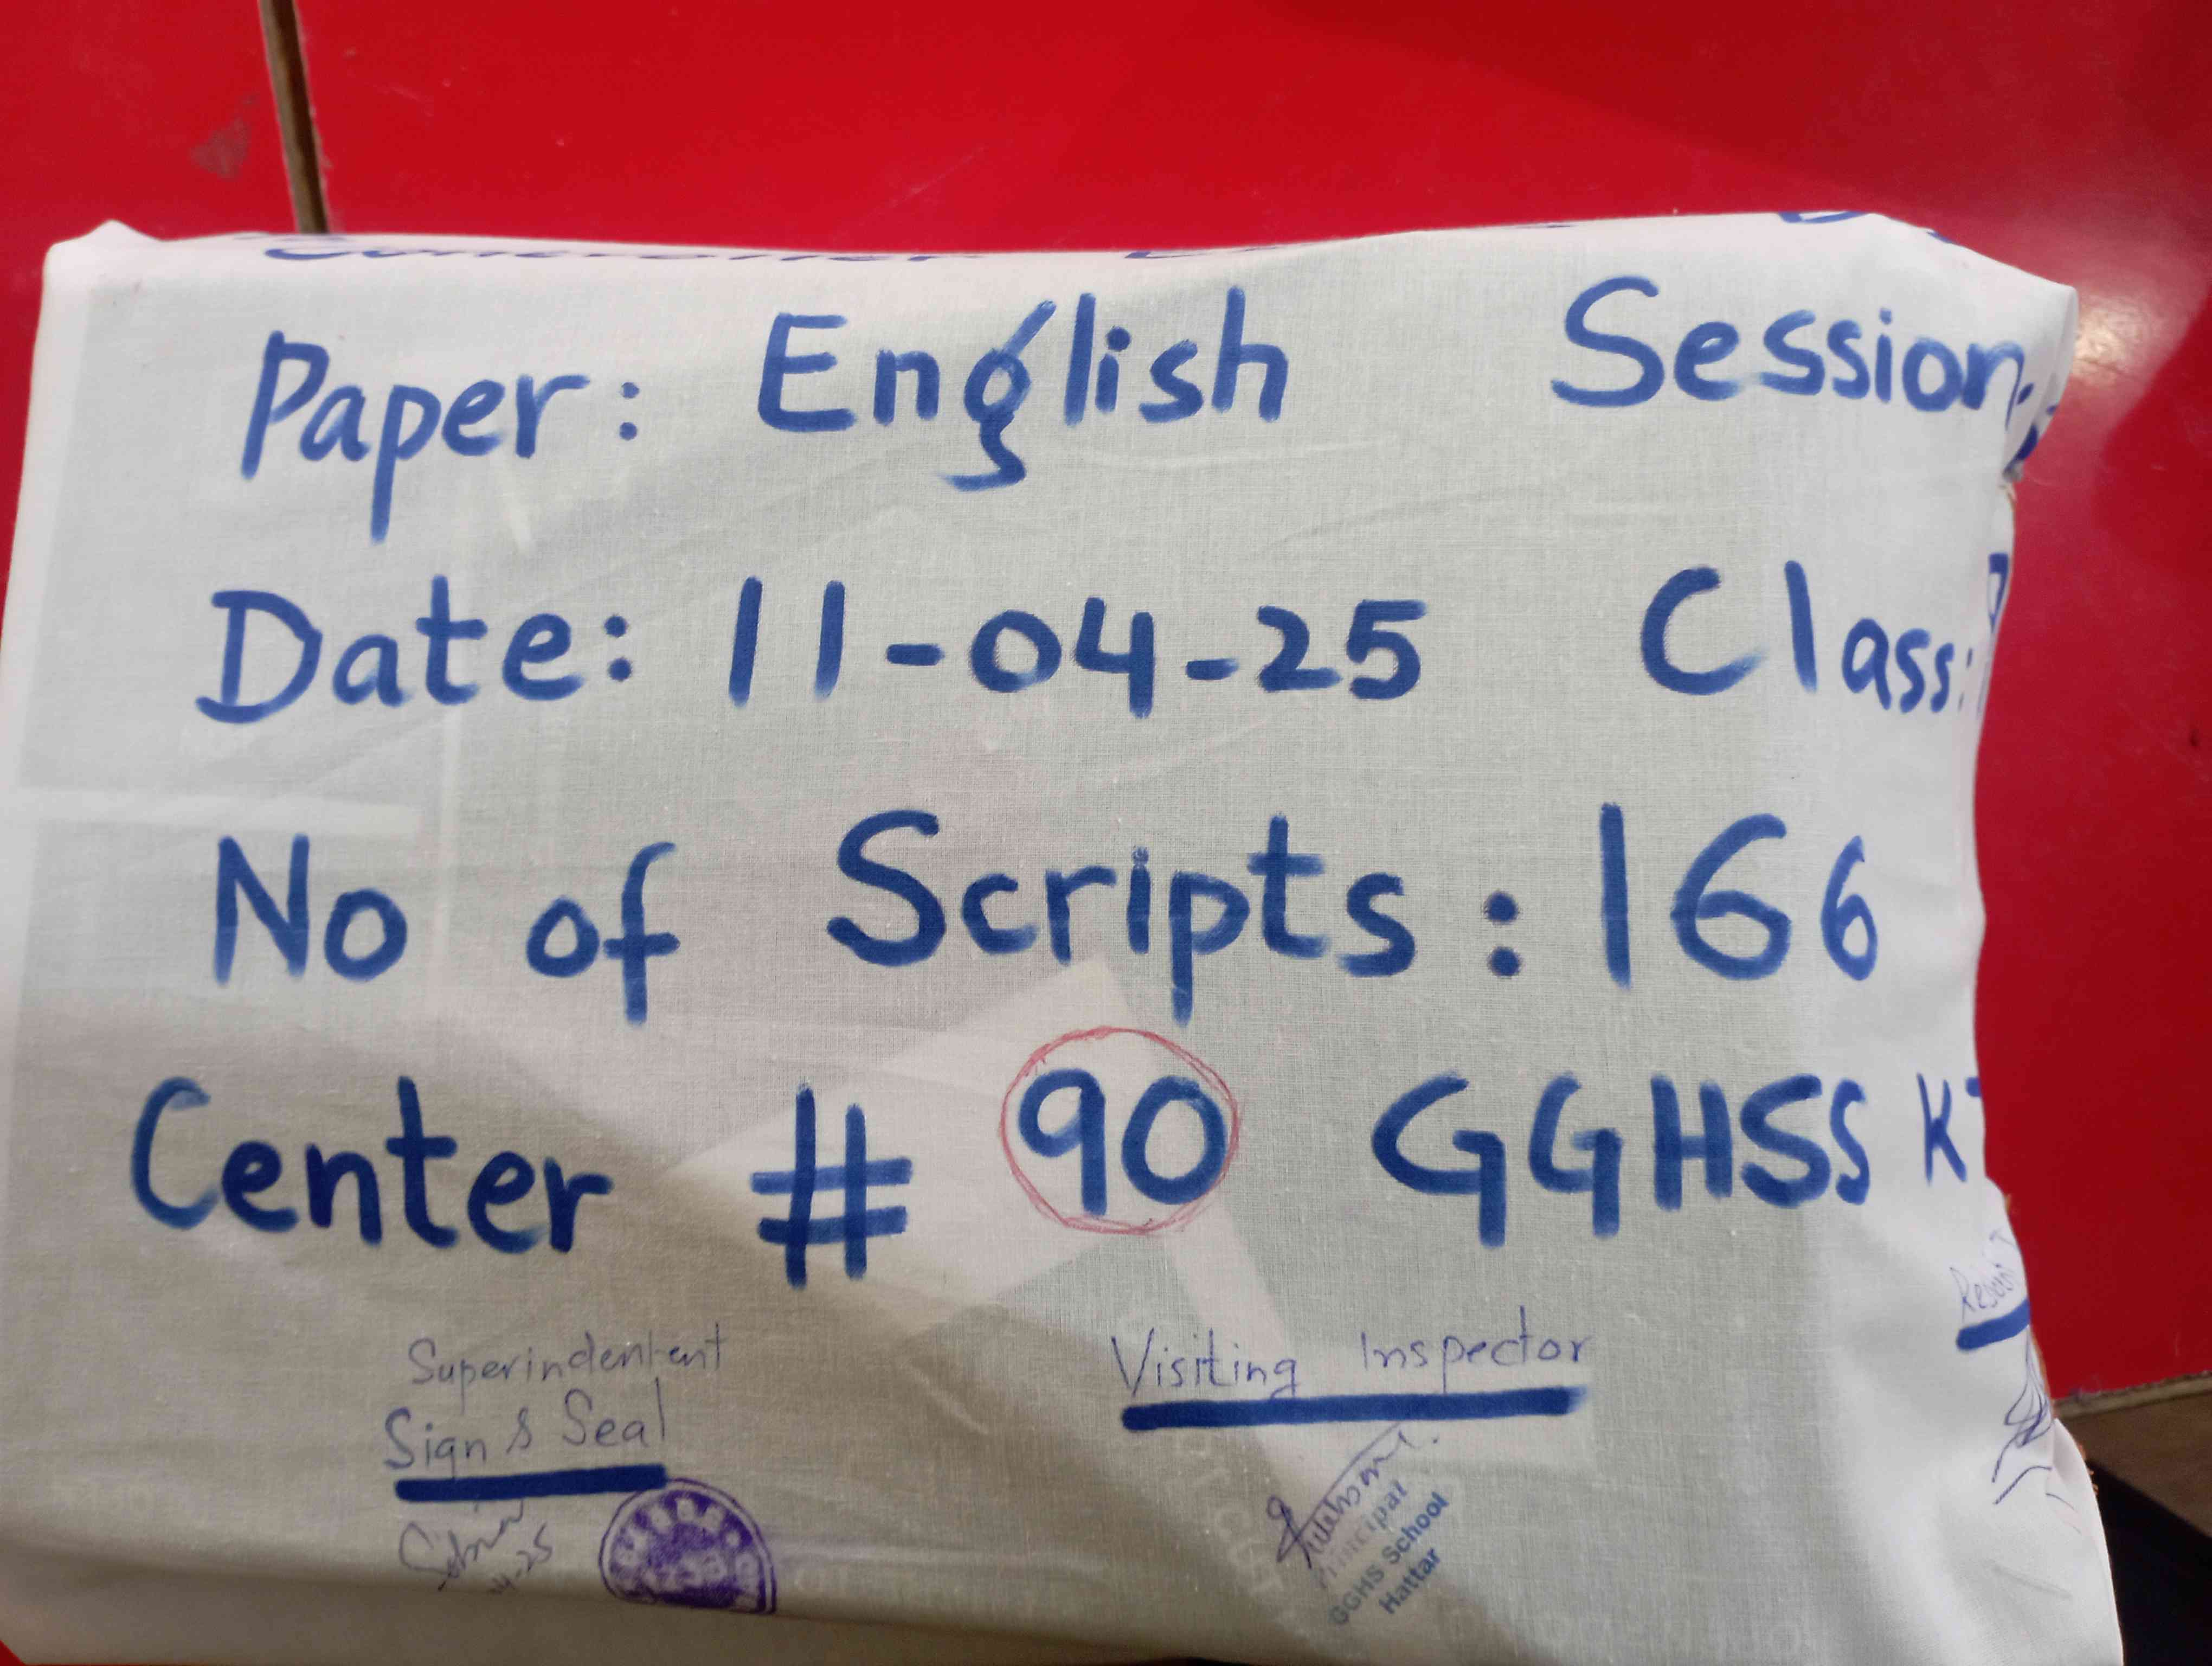 Paper: English Session:
Date: 11-04-25 Class:
No of Scripts: 166
Center # 90 GGHSS
Superindentent
Sign & Seal
Visiting Inspector
04-25
Principal
GGHS School
Hattar